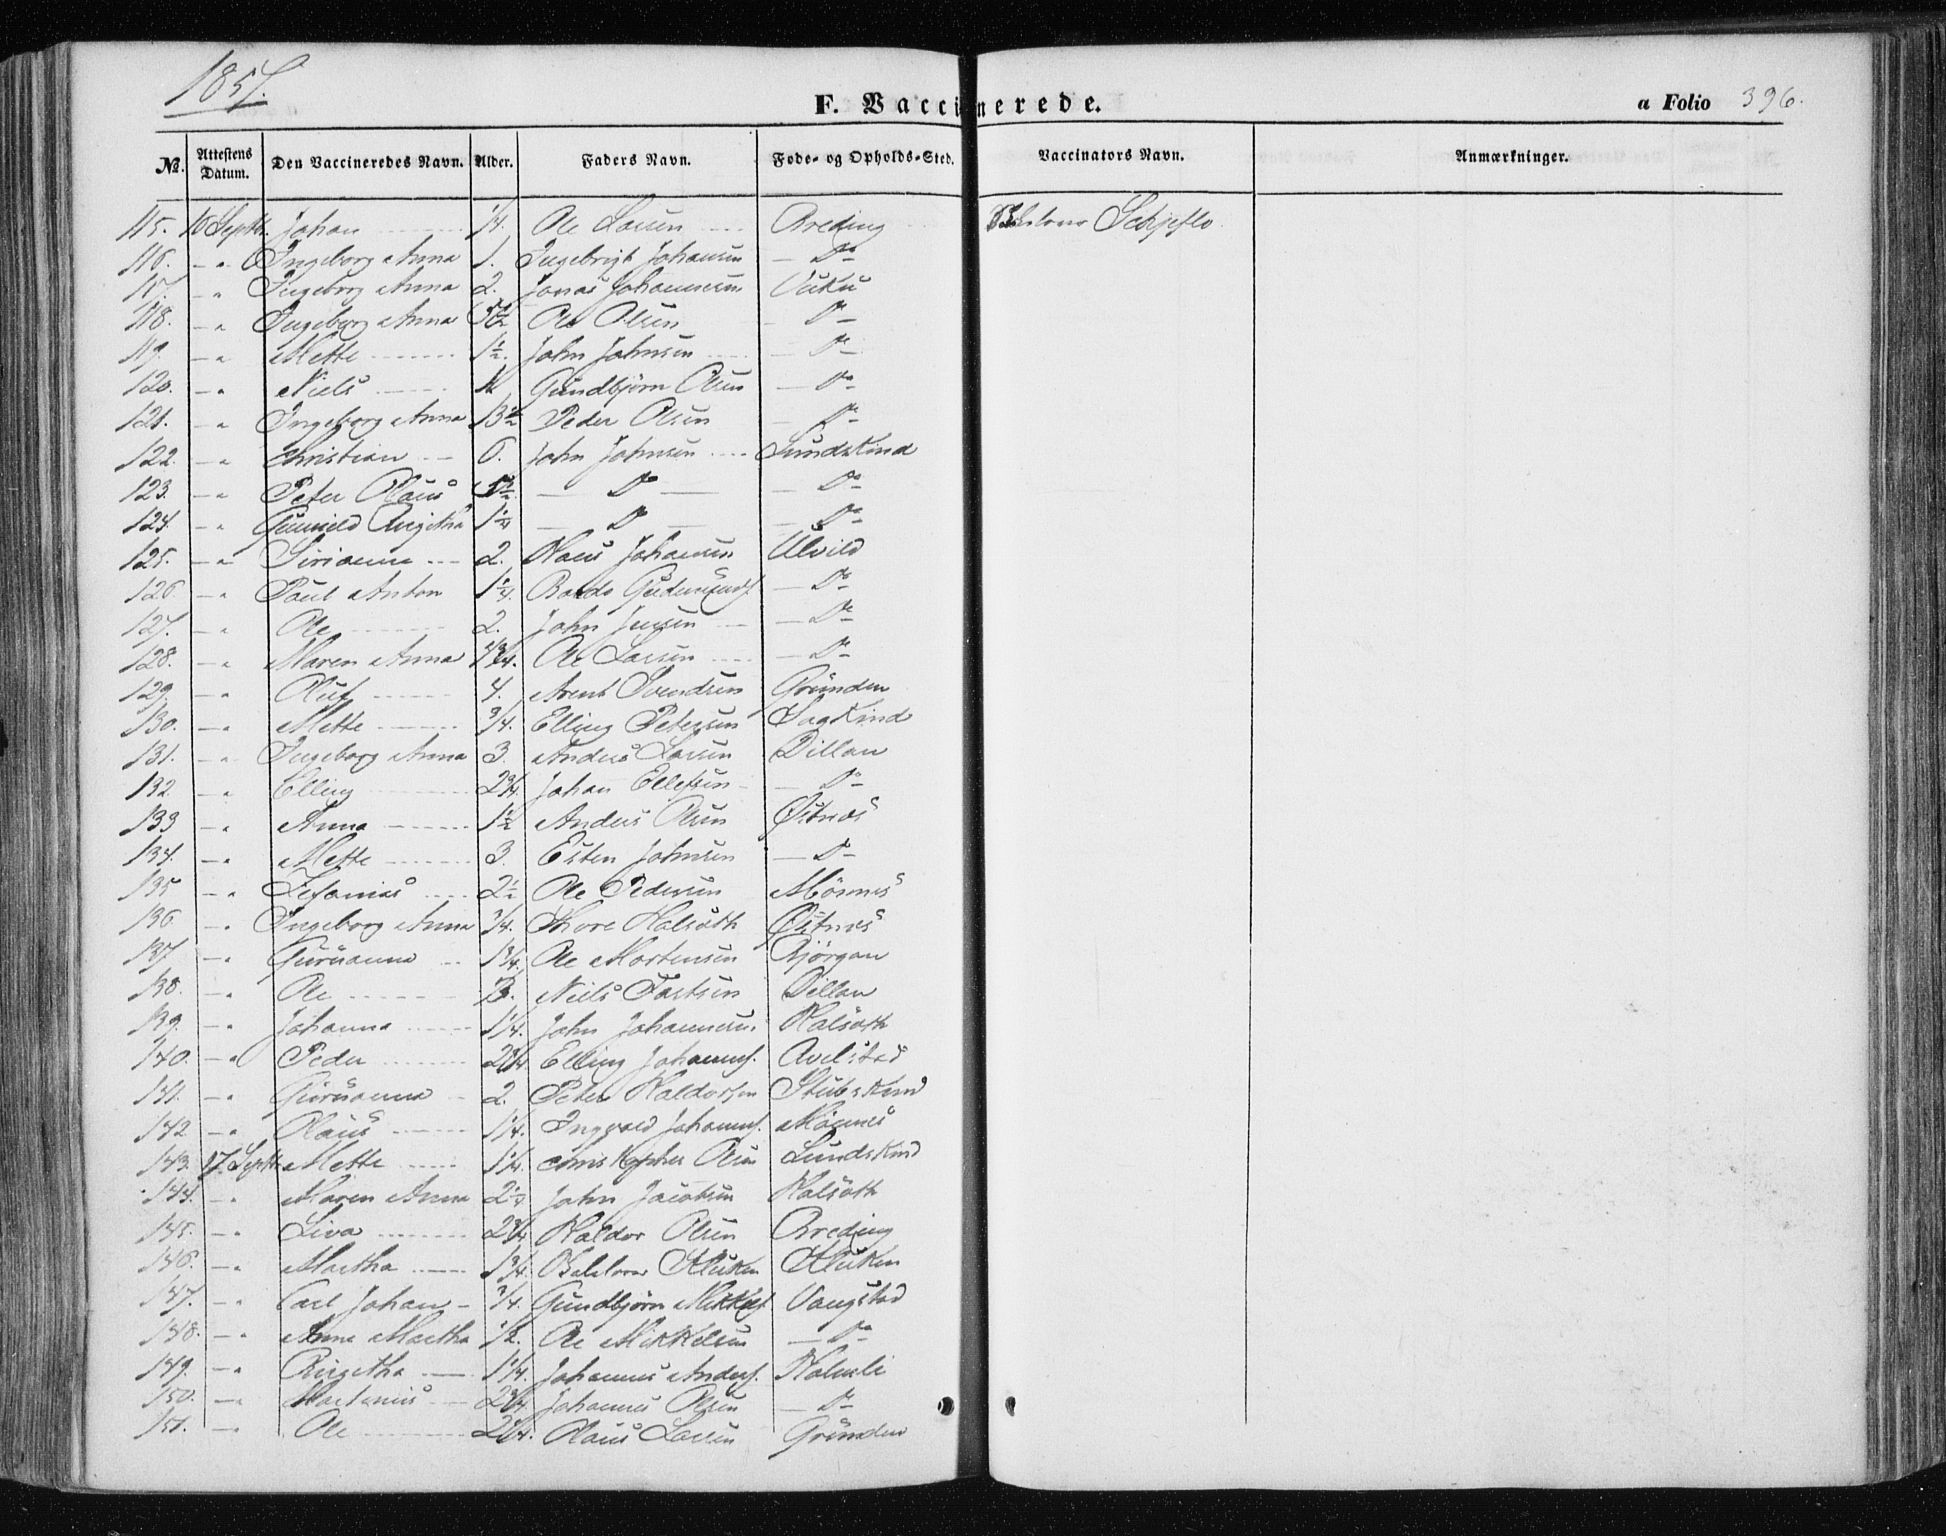 1857.
F. Vaccinerede.
a Folio 396.
№. Attestens Datum. Den Vaccineredes Navn. Alder. Faders Navn. Føde- og Opholds-Sted. Vaccinators Navn. Anmærkninger.
115. 16 Septbr. Johan 1/4. Ole Larsen Breding Schjeflo
116. " Ingeborg Anna 1. Ingebrigt Johansen Do
117. " Ingeborg Anna 2. Jonas Johannesen Vuku
118. " Ingeborg Anna Ole Olsen Do
119. " Mette 1½. John Johnsen Do
120. " Niels Gundbjørn Olsen Do
121. " Ingeborg Anna Peder Olsen Do
122. " Christian 6. John Johnsen Sundskind
123. " Peter Olaus Do Do
124. " Gunild Birgitha 1¼ Do Do
125. " Sirianna 2. Olaus Johansen Ulvild
126. " Paul Anton 1¼. Bardo Do
127. " Ole 2. John Jensen Do
128. " Maren Anna Ole Larsen Do
129. " Oluf 4. Arent Svendsen Grunden
130. " Mette 3/4. Elling Petersen Sagkind
131. " Ingeborg Anna 3. Anders Larsen Dillan
132. " Elling 2¾. Johan Ellefsen Do
133 " Anna 1½ Anders Olsen Østnes
134. " Mette 3. Esten Johnsen Do
135 " Zefanias 2½ Ole Pedersen Mönnes
136. " Ingeborg Anna 3/4. Thore Halsøth Østnes
137. " Guruanna 1¾. Ole Mortensen Bjørgan
138. " Ole Niels Dillan
139. " Johanna 1¼. John Johannesen. Halsøth
140. " Peder 2¾ Elling Johannes. Avelstad
141. " Guruanna 2. Peter Haldorsen Stubskind
142 " Olaus 1¼. Ingvald Johannes. Mönnes
143. 17. Septbr. Mette 1¼. Christopher Olsen Sundskind
144. " Maren Anna 2¼ John Jacobsen Halsøth
145. " Siva 2¾. Haldor Olsen Breding
146. " Martha 1¾. Kluken Kluken
147. " Carl Johan 3/4. Gundbjørn Mikkels. Vangstad
148. " Anne Martha 1/2. Ole Mikkelsen Do
149. " Birgitha 1¼. Johannes Anders. Holmli
150. " Martinus 2¾ Johannes Olsen Do
151. " Ole Olaus Larsen Grunden